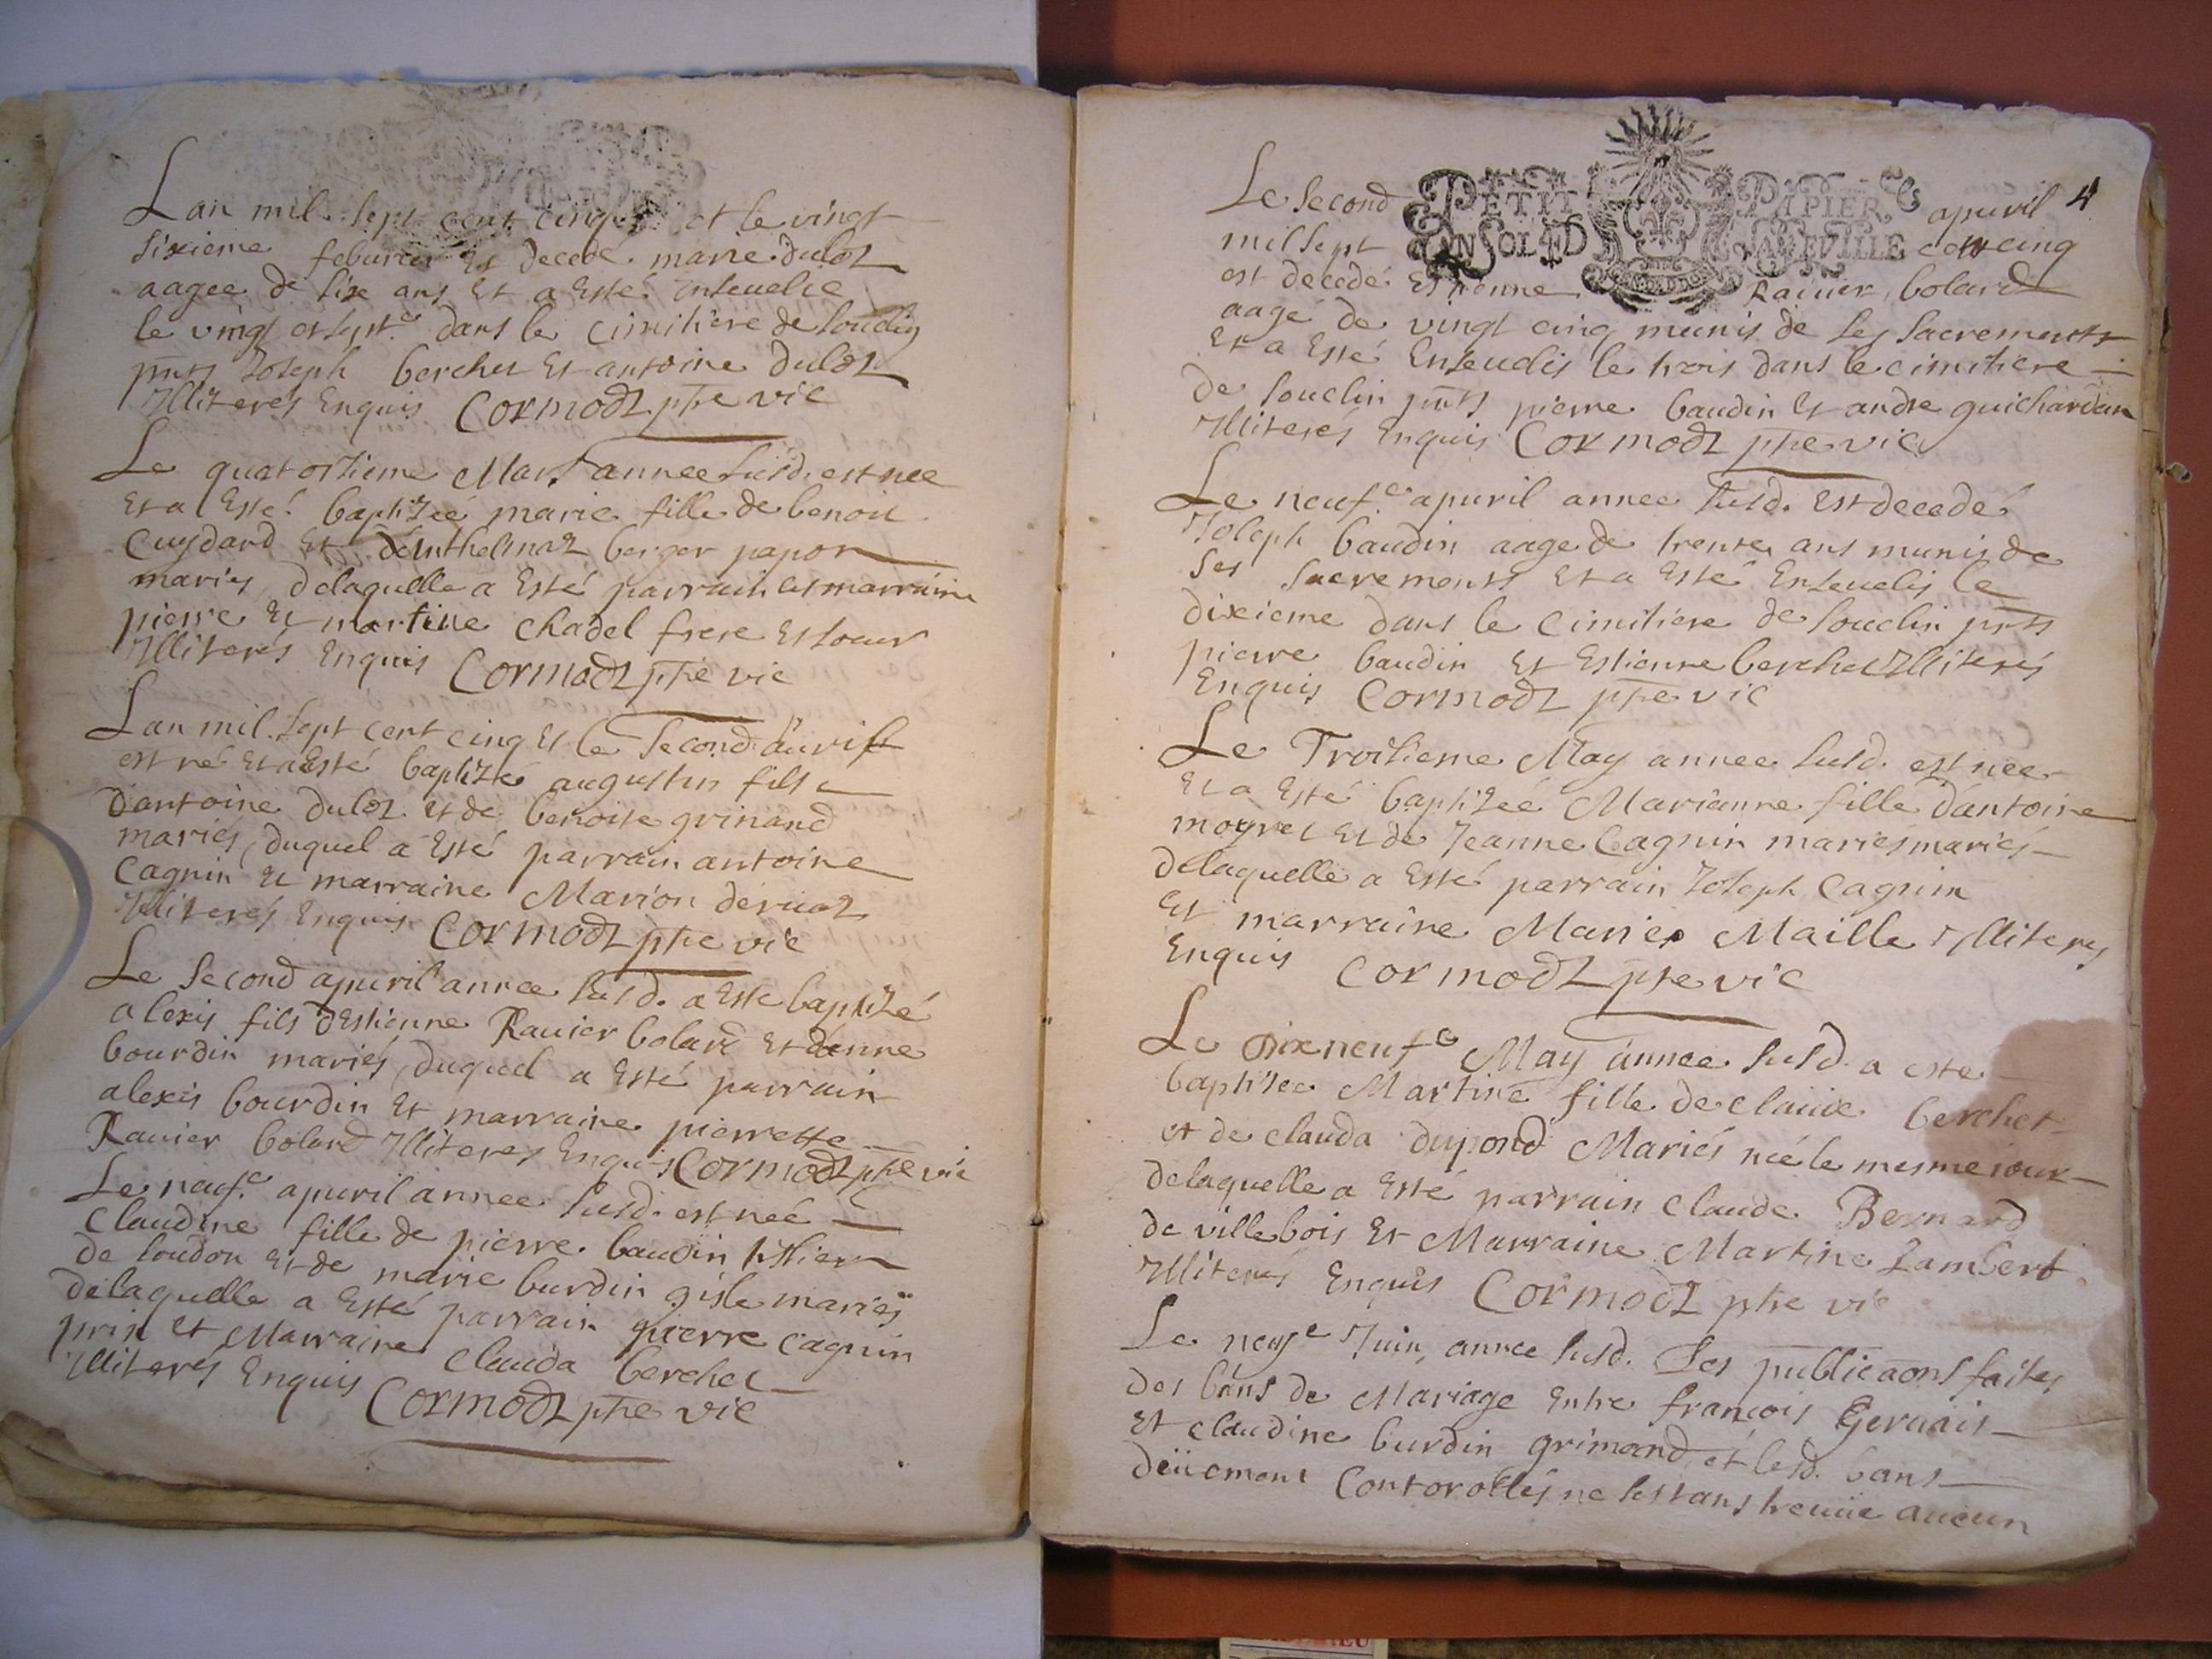 Lan mil sept cent cinq et le vingt
sixieme feburier Est decedé marie duloz
aagee de sixe ans Et a Esté Enseuelie
le vingt et sept.e dans le cimitiere de souclin
pnts Joseph berchet Et antoine duloz
Illiterés Enquis Cormodz ptre vic
Le quatorzieme Mars annee susd. est nee
Et a Esté baptizeé marie fille de benoit
Cuydard Et danthelmaz berger papon
mariés, delaquelle a Esté parrain et marraine
pierre Et martine chadel frere Et soeur
Illiterés Enquis Cormodz ptre vic
Lan mil sept cent cinq Et le second auril
est né Et a Esté baptizé augustin fils
dantoine duloz et de benoite grinand
mariés, duquel a Esté parrain antoine
Cagnin Et marraine Marion deruaz
Illiterés Enquis Cormodz ptre vic
Le second apuril annee susd. a Esté baptizé
alexis fils dEstienne Rauier bolard Et danne
bourdin mariés, duquel a Esté parrain
alexis bourdin Et marraine pierrette
Rauier bolard Illiterés Enquis Cormodz ptre vic
Le neuf.e apuril annee susd. est neé
Claudine fille de pierre baudin
de soudon Et de marie burdin gisle mariés
delaquelle a Esté parrain pierre cagnin
prin et Marraine Clauda berchet
Illiterés Enquis Cormodz ptre vic
4
PETIT PAPIER
UN SOL LE D LA FEVILLE
Le second apuril
mil sept cent cinq
est decedé Estienne Rauier bolard
aagé de vingt cinq munis de ses sacrements
Et a Esté Enseuelis le trois dans le cimitiere
de souclin pnts pierre baudin Et andre guichardan
Illiterés Enquis Cormodz ptre vic
Le neuf.e apuril annee susd. Est decedé
Joseph baudin aage de trente ans munis de
ses sacrements Et a Esté Enseuelis le
dixieme dans le cimitiere de souclin pnts
pierre baudin Et Estienne berchet Illiterés
Enquis Cormodz ptre vic
Le Troisieme May annee susd. est nee
Et a Esté baptizeé Marianne fille dantoine
moyret Et de Jeanne Cagnin mariés mariés
delaquelle a Esté parrain Joseph Cagnin
Et marraine Marie Maille Illiterés
Enquis Cormodz ptre vic
Le Dix neuf.e May annee susd. a esté
baptizee Martine fille de claude berchet
et de clauda dupond Mariés née le mesme iour
delaquelle a Esté parrain Claude Bernard
de villebois Et Marraine Martine Lambert
Illiterés Enquis Cormodz ptre vic
Le neuf.e Juin annee susd. Les publicaons faites
des bans de Mariage Entre francois Geruais
Et claudine burdin grimand et lesd. bans
deüement Contorollés ne sestans treuué aucun